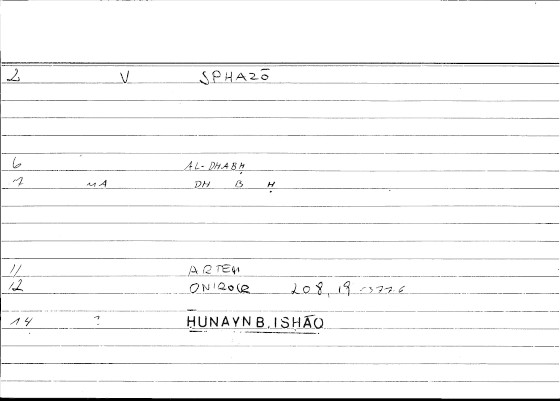 2 V SPHAZŌ
6 AL-DHABḤ
7 MA DH B Ḥ
11 ARTEM
12 ONIROCR 208, 19
14 ? HUNAYN B. ISHĀQ